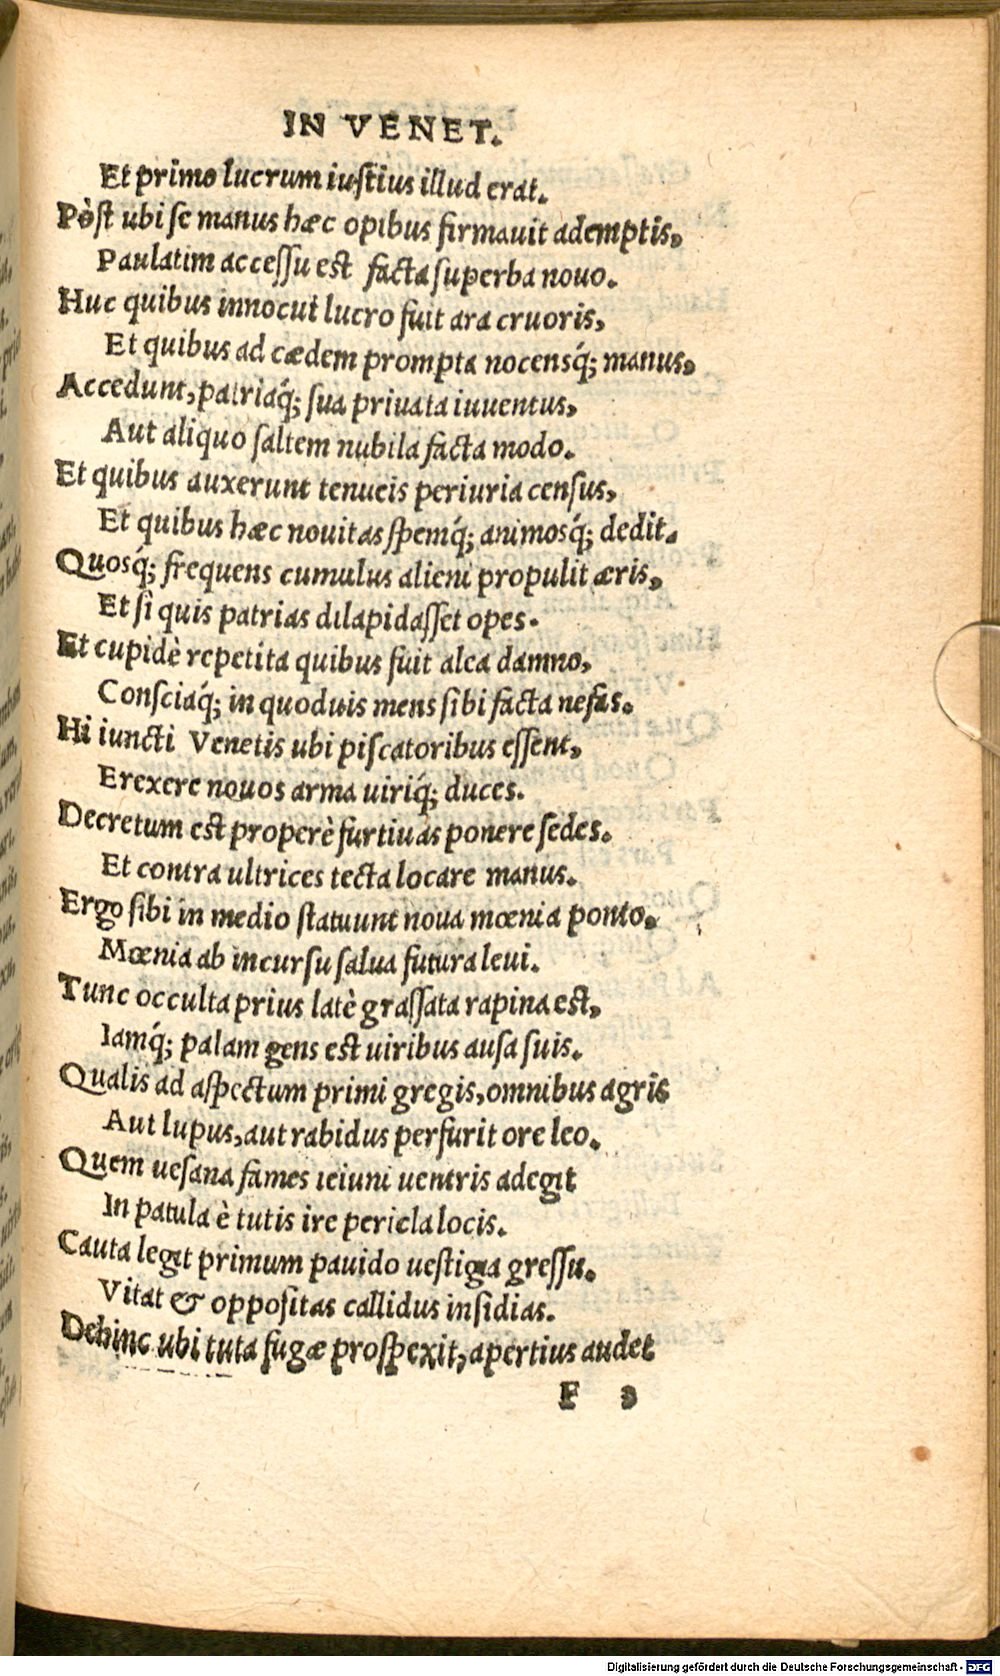 IN VENET.
Et primo lucrum iustius illud erat.
Pòst ubi se manus hæc opibus firmauit ademptis,
Paulatim accessu est facta superba nouo.
Huc quibus innocui lucro fuit ara cruoris,
Et quibus ad cædem prompta nocensq́; manus,
Accedunt, patriaq́; sua priuata iuuentus,
Aut aliquo saltem nubila facta modo.
Et quibus auxerunt tenueis periuria census,
Et quibus hæc nouitas spemq́; animosq́; dedit.
Quosq́; frequens cumulus alieni propulit æris,
Et si quis patrias dilapidasset opes.
Et cupidè repetita quibus fuit alea damno,
Consciaq́; in quoduis mens sibi facta nefas.
Hi iuncti Venetis ubi piscatoribus essent,
Erexere nouos arma uiriq́; duces.
Decretum est properè furtiuas ponere sedes.
Et contra ultrices tecta locare manus.
Ergo sibi in medio statuunt noua mœnia ponto.
Mœnia ab incursu salua futura leui.
Tunc occulta prius latè grassata rapina est,
Iamq́; palam gens est uiribus ausa suis.
Qualis ad aspectum primi gregis, omnibus agris
Aut lupus, aut rabidus perfurit ore leo.
Quem uesana fames ieiuni uentris adegit
In patula è tutis ire pericla locis.
Cauta legit primum pauido uestigia gressu.
Vitat & oppositas callidus insidias.
Dehinc ubi tuta fugæ prospexit, apertius audet
F 3
Digitalisierung gefördert durch die Deutsche Forschungsgemeinschaft - DFG